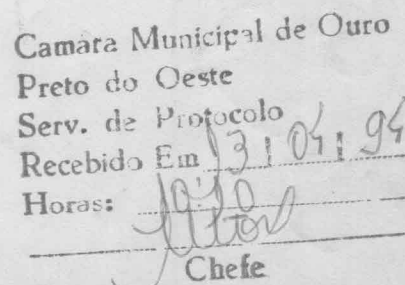 Camara Municipal de Ouro
Preto do Oeste
Serv. de Protocolo
Recebido Em 13 / 04 / 94
Horas: 10:10
Chefe